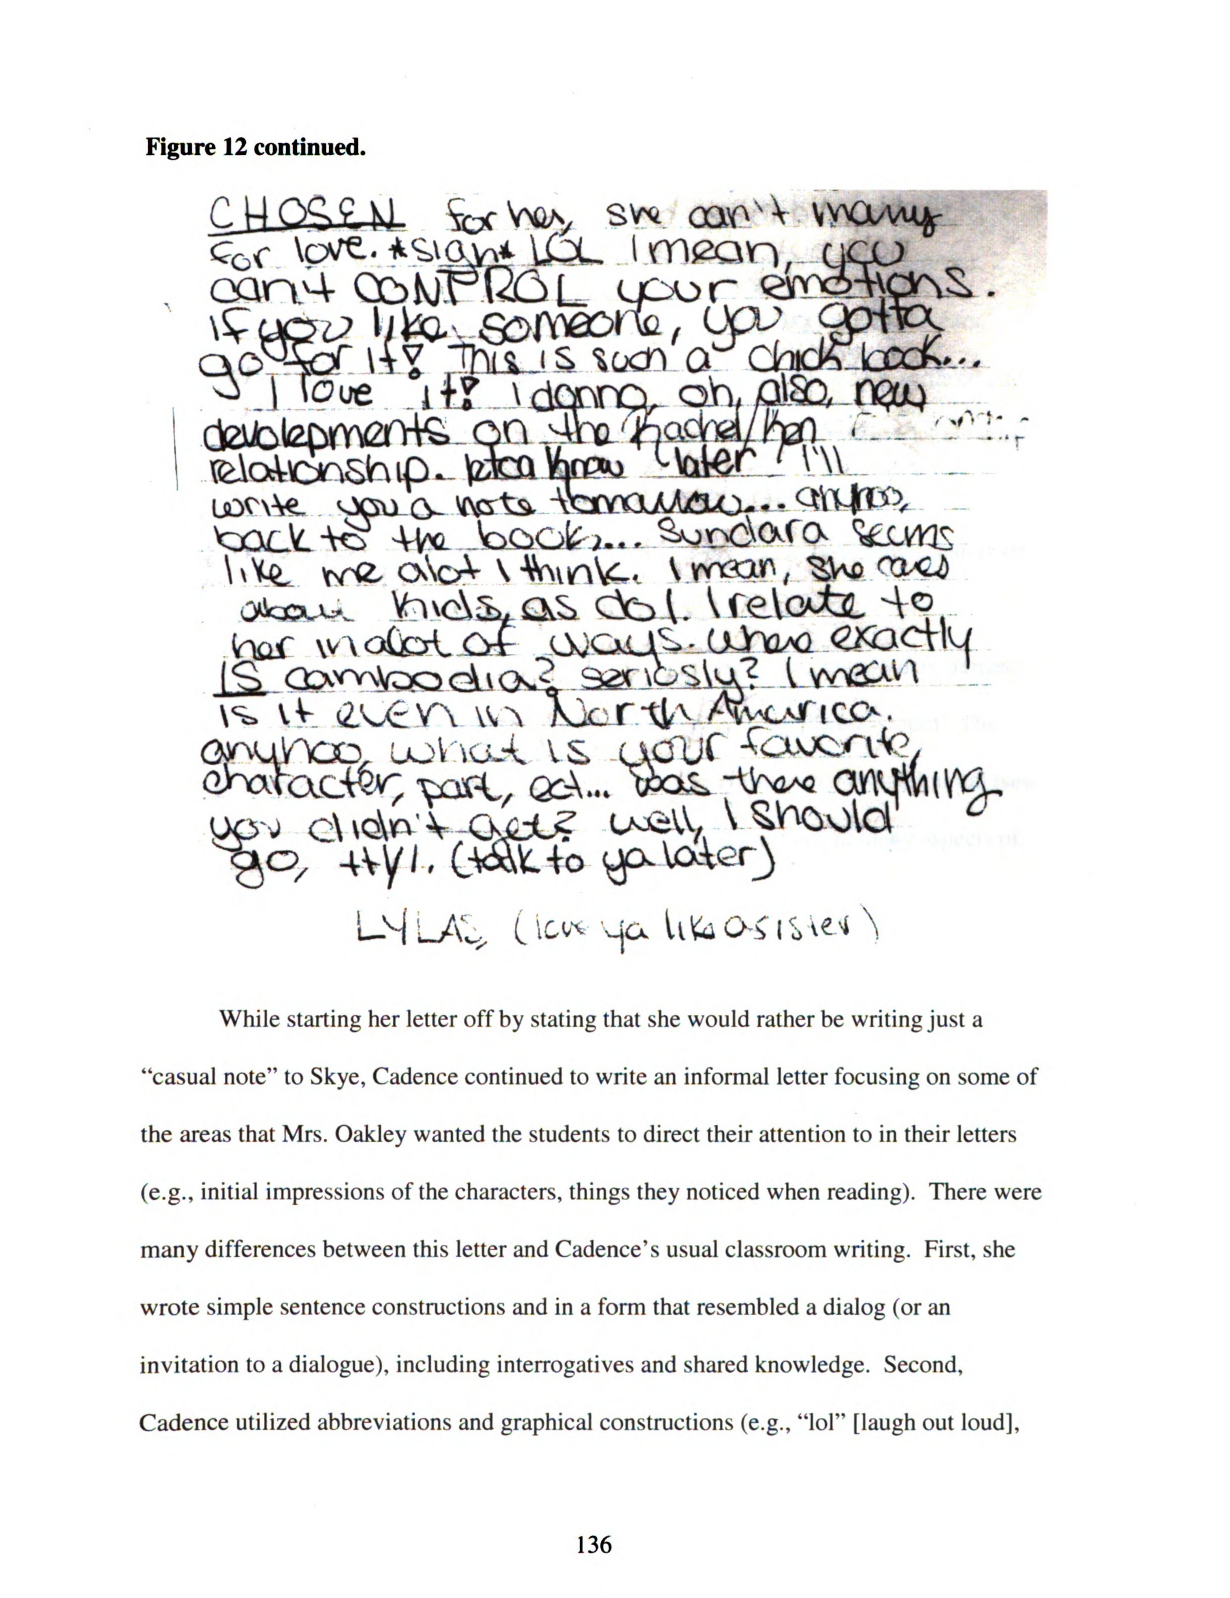 Figure 12 continued.
CHOSEN for her, she can't marry
for love. *sigh* LOL I mean, you
can't CONTROL your emotions.
If you like someone, you gotta
go for it! This is such a chick book...
I love it! I donno, oh, also, new
devolepments on the Rachel/Ken
relationship. letca know later I'll
write you a note tomarrow... anyhoo,
back to the book,... Sundara seems
like me alot I think. I mean, she cares
about kids, as do I. I relate to
her in alot of ways. where exactly
IS cambodia? seriosly? I mean
is it even in North Amurica.
anyhoo, what is your favorite,
character, part, ect... was there anything
you didn't get? well, I should
go, ttyl. (talk to ya later)
LYLAS, (love ya like a sister)
While starting her letter off by stating that she would rather be writing just a
“casual note” to Skye, Cadence continued to write an informal letter focusing on some of
the areas that Mrs. Oakley wanted the students to direct their attention to in their letters
(e.g., initial impressions of the characters, things they noticed when reading). There were
many differences between this letter and Cadence’s usual classroom writing. First, she
wrote simple sentence constructions and in a form that resembled a dialog (or an
invitation to a dialogue), including interrogatives and shared knowledge. Second,
Cadence utilized abbreviations and graphical constructions (e.g., “lol” [laugh out loud],
136